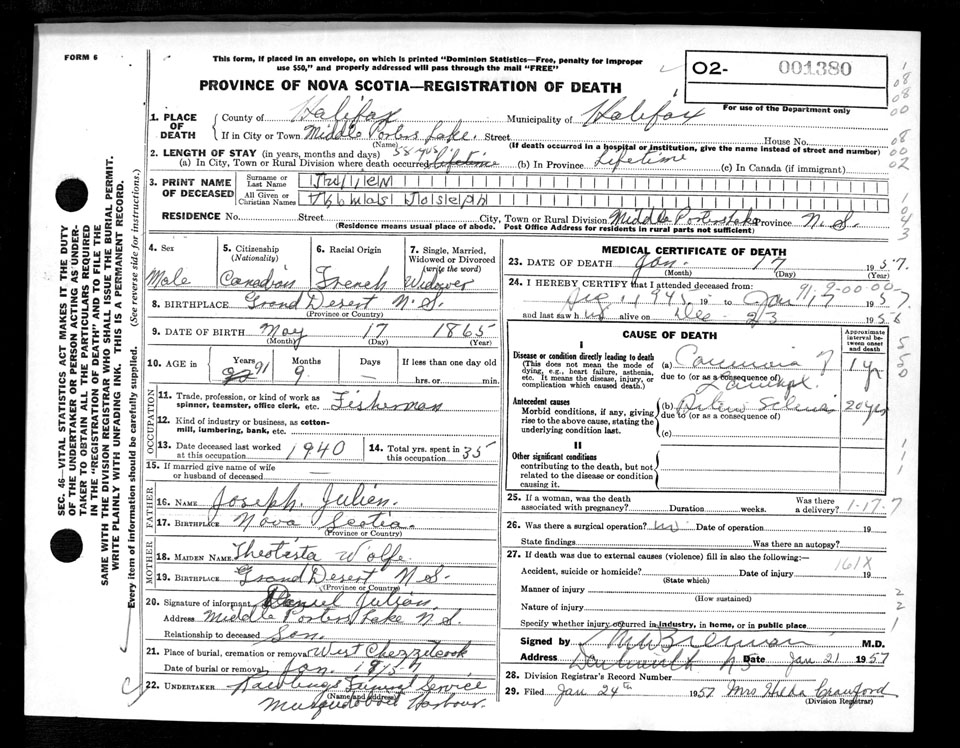 FORM 6
This form, if placed in an envelope, on which is printed "Dominion Statistics—Free, penalty for improper
use $50," and properly addressed will pass through the mail "FREE"
PROVINCE OF NOVA SCOTIA—REGISTRATION OF DEATH
O2- 001380
For use of the Department only
1. PLACE OF DEATH
County of Halifax Municipality of Halifax
If in City or Town Middle Porters Lake. Street House No.
(Name) (If death occurred in a hospital or institution, give the name instead of street and number)
2. LENGTH OF STAY (in years, months and days) 58 yrs
(a) In City, Town or Rural Division where death occurred lifetime (b) In Province Lifetime (c) In Canada (if immigrant)
3. PRINT NAME OF DECEASED
Surname or Last Name Julien
All Given or Christian Names Thomas Joseph
RESIDENCE No. Street City, Town or Rural Division Middle Porters Lake Province N.S.
(Residence means usual place of abode. Post Office Address for residents in rural parts not sufficient)
4. Sex Male
5. Citizenship (Nationality) Canadian
6. Racial Origin French
7. Single, Married, Widowed or Divorced (write the word) Widower
8. BIRTHPLACE Grand Desert N.S.
(Province or County)
9. DATE OF BIRTH May 17 1865
(Month) (Day) (Year)
10. AGE in Years 91 Months 9 Days — If less than one day old
hrs. or min.
OCCUPATION
11. Trade, profession, or kind of work as spinner, teamster, office clerk, etc. Fisherman
12. Kind of industry or business, as cotton-mill, lumbering, bank, etc.
13. Date deceased last worked at this occupation 1940
14. Total yrs. spent in this occupation 35
15. If married give name of wife or husband of deceased
FATHER
16. NAME Joseph Julien.
17. BIRTHPLACE Nova Scotia
(Province or County)
MOTHER
18. MAIDEN NAME Theotista Wolfe
19. BIRTHPLACE Grand Desert N.S.
(Province or County)
20. Signature of informant Daniel Julien
Address Middle Porters Lake N.S.
Relationship to deceased Son.
21. Place of burial, cremation or removal West Chezzetcook
Date of burial or removal Jan.
22. UNDERTAKER Rawlings Funeral Service
(Name and Address)
Musquodoboit Harbour.
MEDICAL CERTIFICATE OF DEATH
23. DATE OF DEATH Jan. 17 1957.
(Month) (Day) (Year)
24. I HEREBY CERTIFY that I attended deceased from:
Aug. 1945 19 to Jan 17 1957.
91-9-00-00-
and last saw him alive on Dec 23 1956
CAUSE OF DEATH
Approximate interval between onset and death
I
Disease or condition directly leading to death
(This does not mean the mode of dying, e.g., heart failure, asthenia, etc. It means the disease, injury, or complication which caused death.)
(a) Carcinoma 1 yr
due to (or as a consequence of)
Antecedent causes
Morbid conditions, if any, giving rise to the above cause, stating the underlying condition last.
(b) 20 yrs
due to (or as a consequence of)
(c)
II
Other significant conditions
contributing to the death, but not related to the disease or condition causing it.
25. If a woman, was the death associated with pregnancy? Duration weeks. Was there a delivery?
1-17-7
26. Was there a surgical operation? no Date of operation 19
State findings Was there an autopsy?
27. If death was due to external causes (violence) fill in also the following:—
161X
Accident, suicide or homicide? Date of injury 19
(State which)
Manner of injury
(How sustained)
Nature of injury
Specify whether injury occurred in industry, in home, or in public place
Signed by M.D.
Address Dartmouth N.S. Date Jan 21 1957
28. Division Registrar's Record Number
29. Filed Jan 24th 1957 Mrs Hilda Crawford
(Division Registrar)
SEC. 46—VITAL STATISTICS ACT MAKES IT THE DUTY
OF THE UNDERTAKER OR PERSON ACTING AS UNDER-
TAKER TO OBTAIN ALL THE PARTICULARS REQUIRED
IN THE "REGISTRATION OF DEATH" AND TO FILE THE
SAME WITH THE DIVISION REGISTRAR WHO SHALL ISSUE THE BURIAL PERMIT.
WRITE PLAINLY WITH UNFADING INK. THIS IS A PERMANENT RECORD.
Every item of information should be carefully supplied. (See reverse side for instructions.)